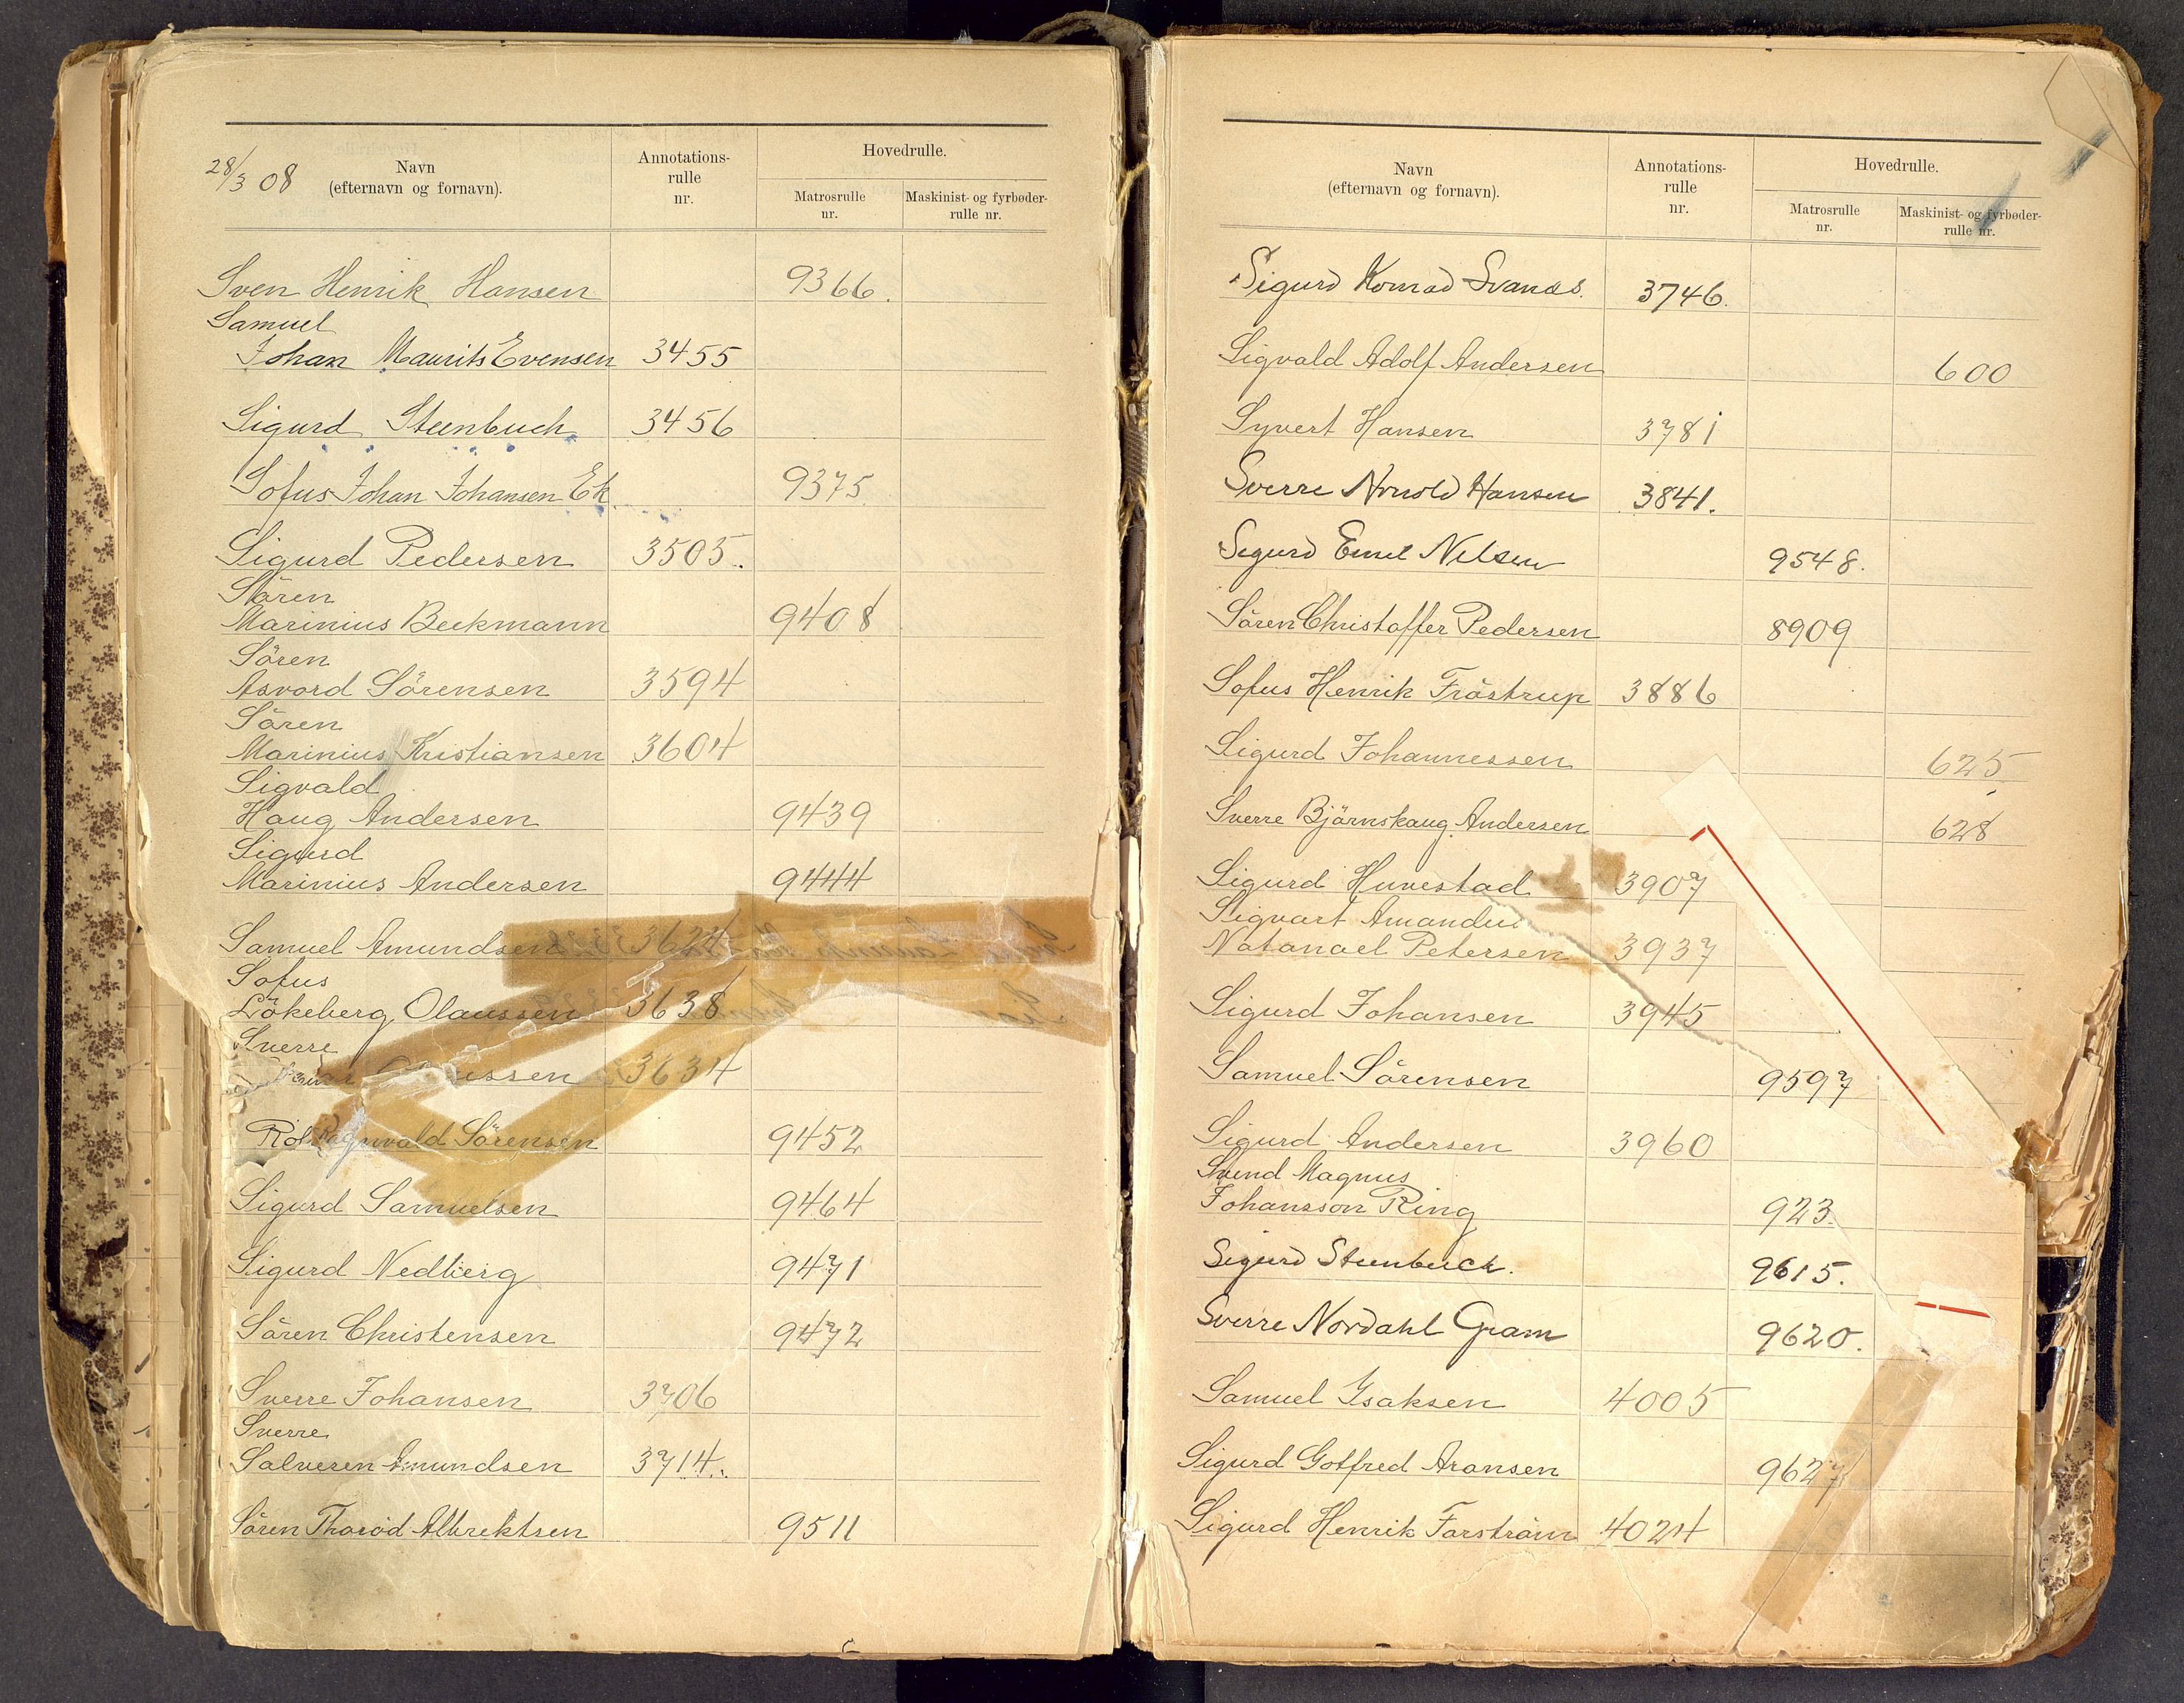 28/3 08
Navn
(efternavn og fornavn).
Annotations-
rulle
nr.
Hovedrulle.
Matrosrulle
nr.
Maskinist- og fyrbøder-
rulle nr.
Sven Henrik Hansen 9366.
Samuel
Johan Maurits Evensen 3455
Sigurd Steenbuch 3456
Sofus Johan Johansen Ek 9375
Sigurd Pedersen 3505.
Sören
Marinius Beckmann 9408
Sören
Asvord Sörensen 3594
Sören
Marinius Kristiansen 3604
Sigvald
Haug Andersen 9439
Sigurd
Marinius Andersen 9444
Samuel Amundsen 3624
Sofus
Lökeberg Olaussen 3638
Sverre
3634
Ragnvald Sörensen 9452
Sigurd Samuelsen 9464
Sigurd Nedberg 9471
Sören Christensen 9472
Sverre Johansen 3706
Sverre
Salveren Amundsen 3714.
Sören Thorød Albrektsen 9511
Navn
(efternavn og fornavn).
Annotations-
rulle
nr.
Hovedrulle.
Matrosrulle
nr.
Maskinist- og fyrbøder-
rulle nr.
Sigurd Konrad Svanæs. 3746.
Sigvald Adolf Andersen 600
Syvert Hansen 3781
Sverre Arnold Hansen 3841.
Sigurd Emil Nilsen 9548.
Sören Christoffer Pedersen 8909
Sofus Henrik Fröstrup 3886
Sigurd Johannessen 625
Sverre Björnskaug Andersen 628
Sigurd Hunestad 3907
Sigvart Amandus
Natanael Petersen 3937
Sigurd Johansen 3945
Samuel Sörensen 9597
Sigurd Andersen 3960
Svend Magnus
Johansson Ring 923.
Sigurd Steenbuch. 9615.
Sverre Nordahl Gram 9620.
Samuel Isaksen 4005
Sigurd Gotfred Aronsen 9627
Sigurd Henrik Farström 4024